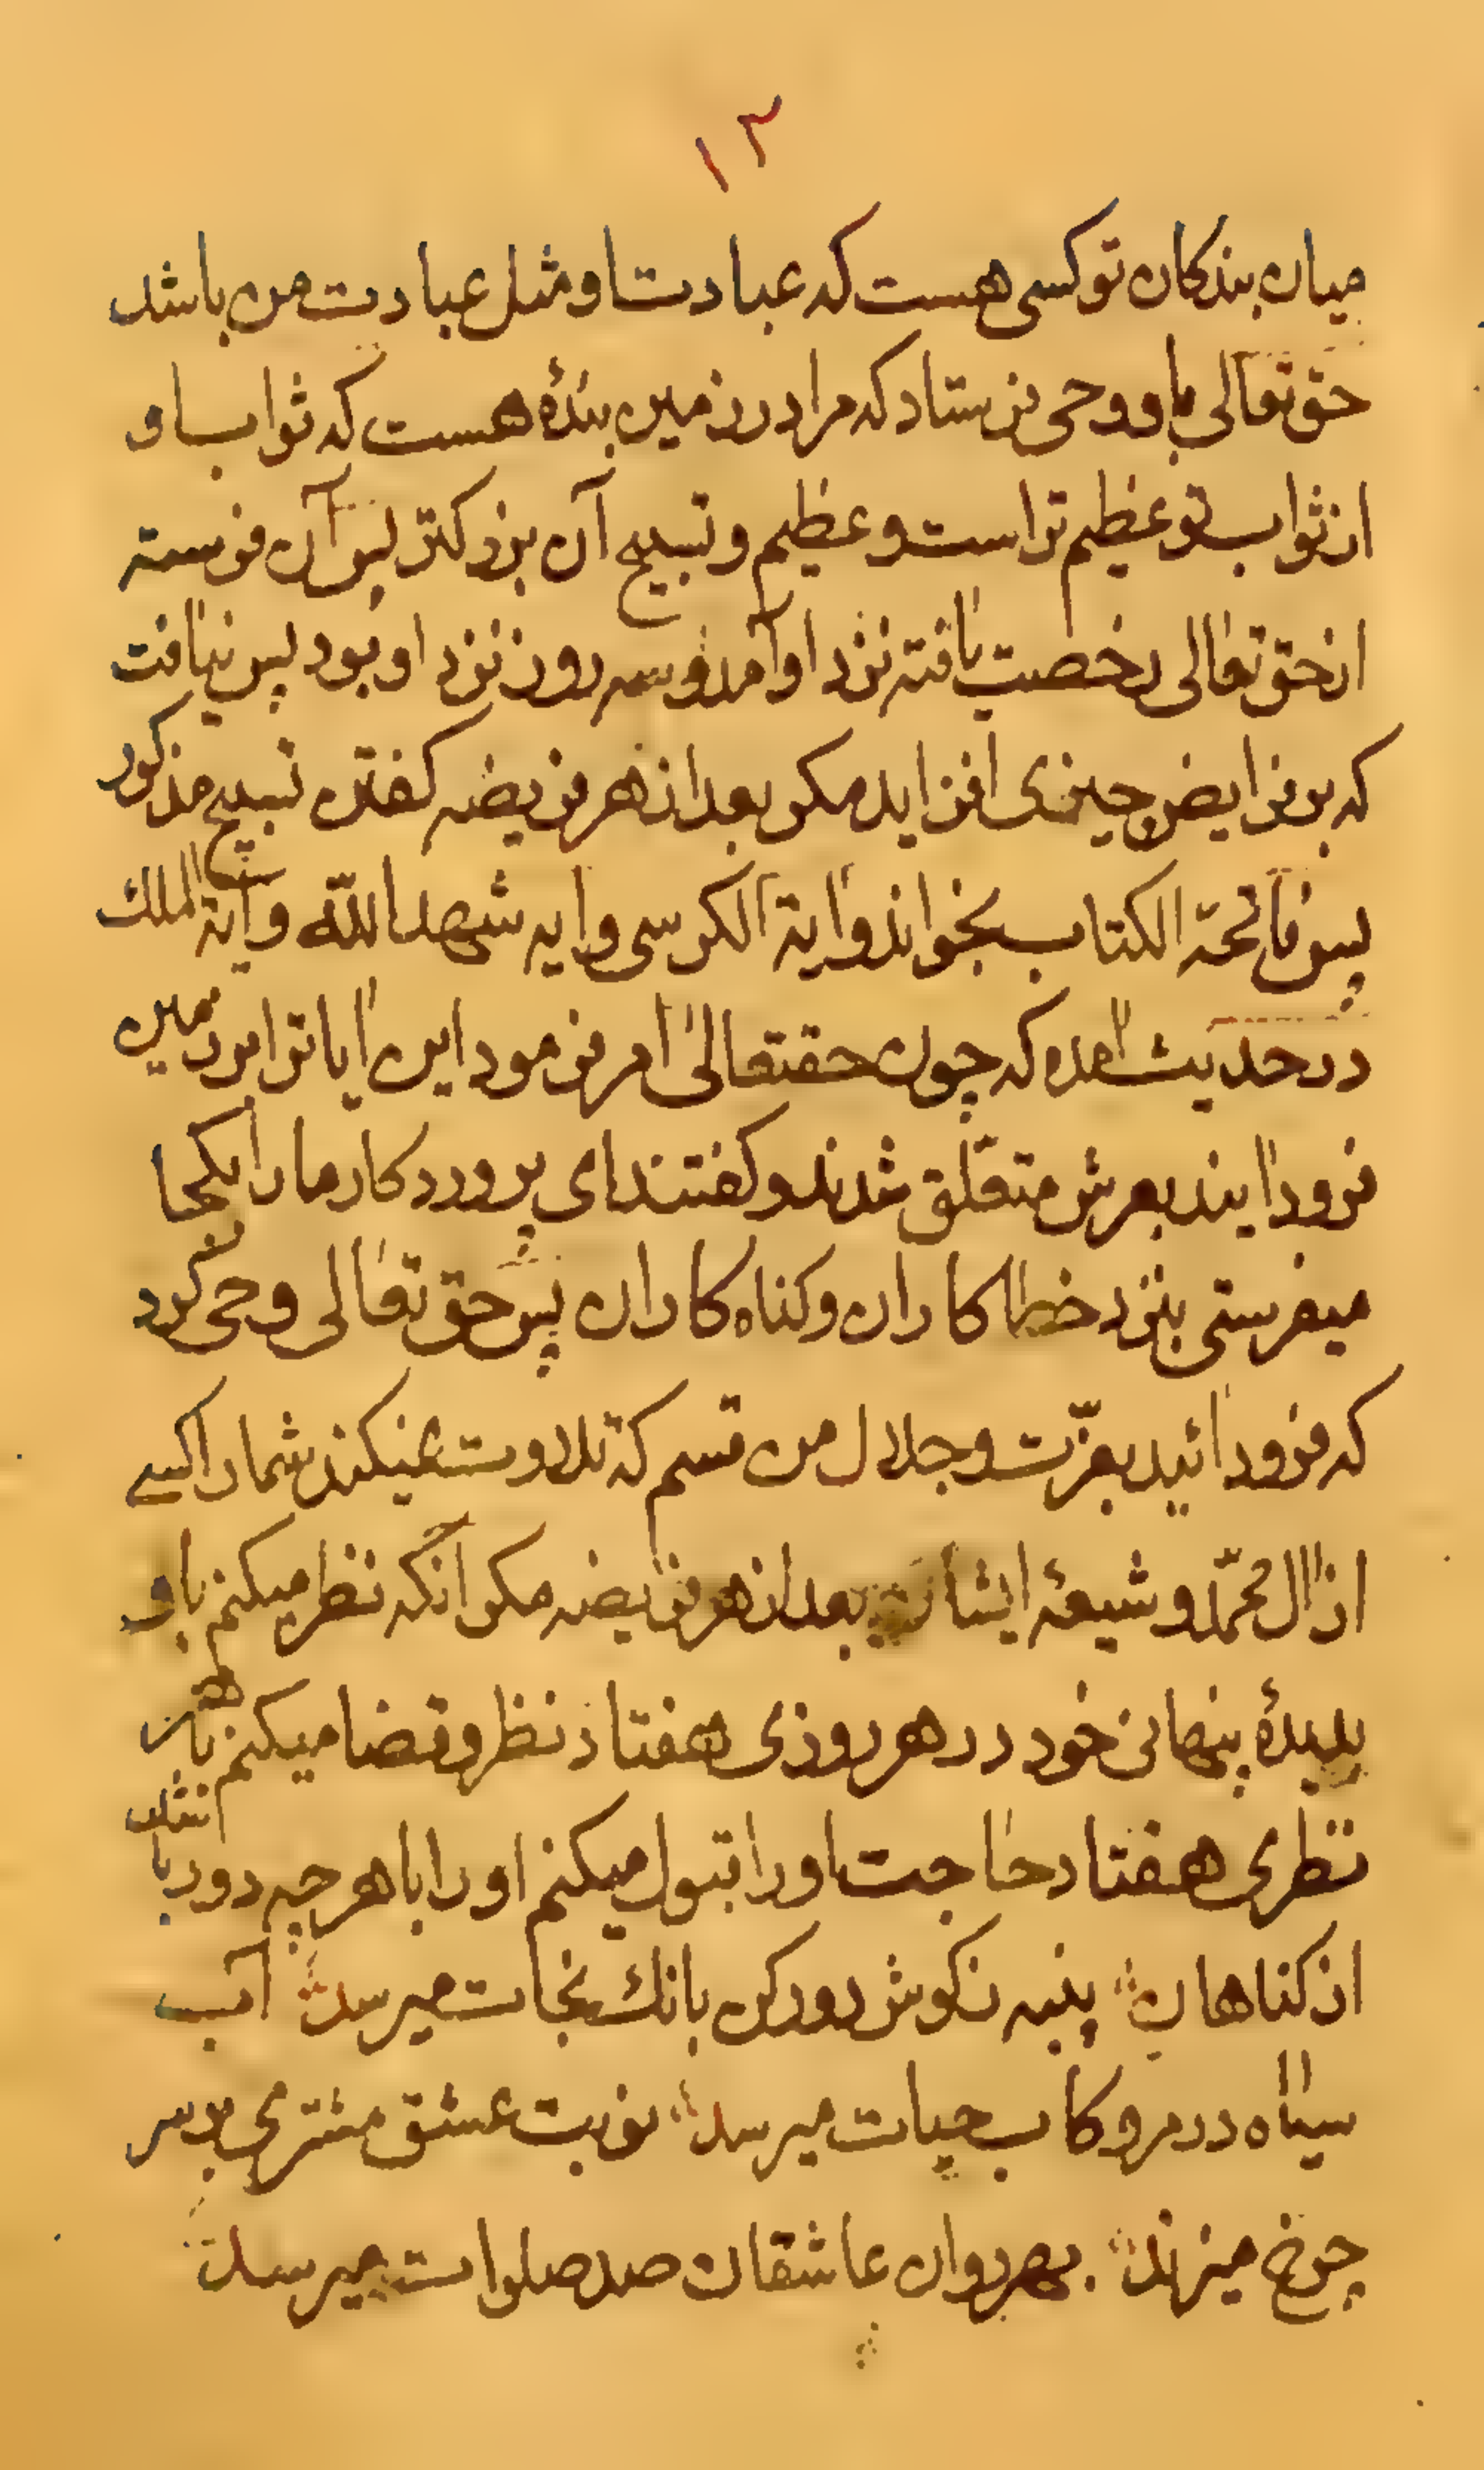 ۱۲
میان بندکان تو کسی هست که عبادت او مثل عبادت من باشد
حق تعالی باو وحی فرستاد که مرا در زمین بندۀ هست که ثواب او
از ثواب تو عظیم تر است و عظیم و تسبیح آن بزرکتر پس آن فرسته
از حق تعالی رخصت یافته نزد او آمد و سه روز نزد او بود پس نیافت
که بر فرایض چیزی افزاید مکر بعد از هر فریضه کفتن تسبیح مذکور
پس فاتحة الکتاب بخواند وایة الکرسی وایه شهد الله وآیة الملک
در حدیث آمده که چون حقتعالی امر فرمود این ایاترا بر زمین
فرود ایند بعرش متعلق شدند و کفتند ای پروردکار ما را بکجا
میفرستی بنزد خطا کاران و کناه کاران پس حق تعالی وحی کرد
که فرود ائید بعزّت و جلال من قسم که تلاوت نمیکند شما را کسے
از ال محمّد و شیعهٔ ایشان بعد از هر فریضه مکر انکه نظر میکنم باو
بدیدۀ پنهانی خود در هر روزی هفتاد نظر و قضا میکنم با هر
نظری هفتاد حاجت او را قبول میکنم او را با هر چه دور باشد
از کناهان پنبه ز کوش دور کن بانک نجات میرسد آب
سیاه در مرو کاب حیات میرسد نوبت عشق مشتری بر سر
چرخ میزند بهر روان عاشقان صد صلوات میرسد